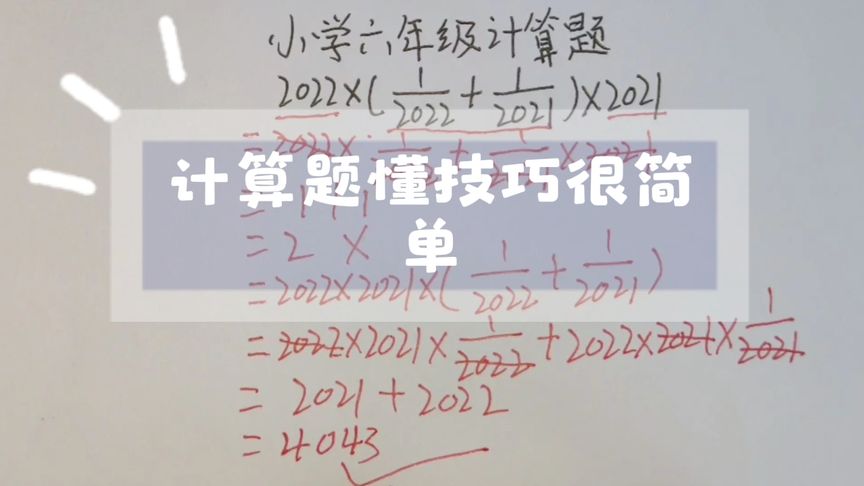 小学六年级计算题
2022×(1/2022+1/2021)×2021
=2022×1/2022+1/2021×2021
计算题懂技巧很简
单
=1+1
=2 ×
=2022×2021×(1/2022+1/2021)
=2022×2021×1/2022+2022×2021×1/2021
=2021+2022
=4043